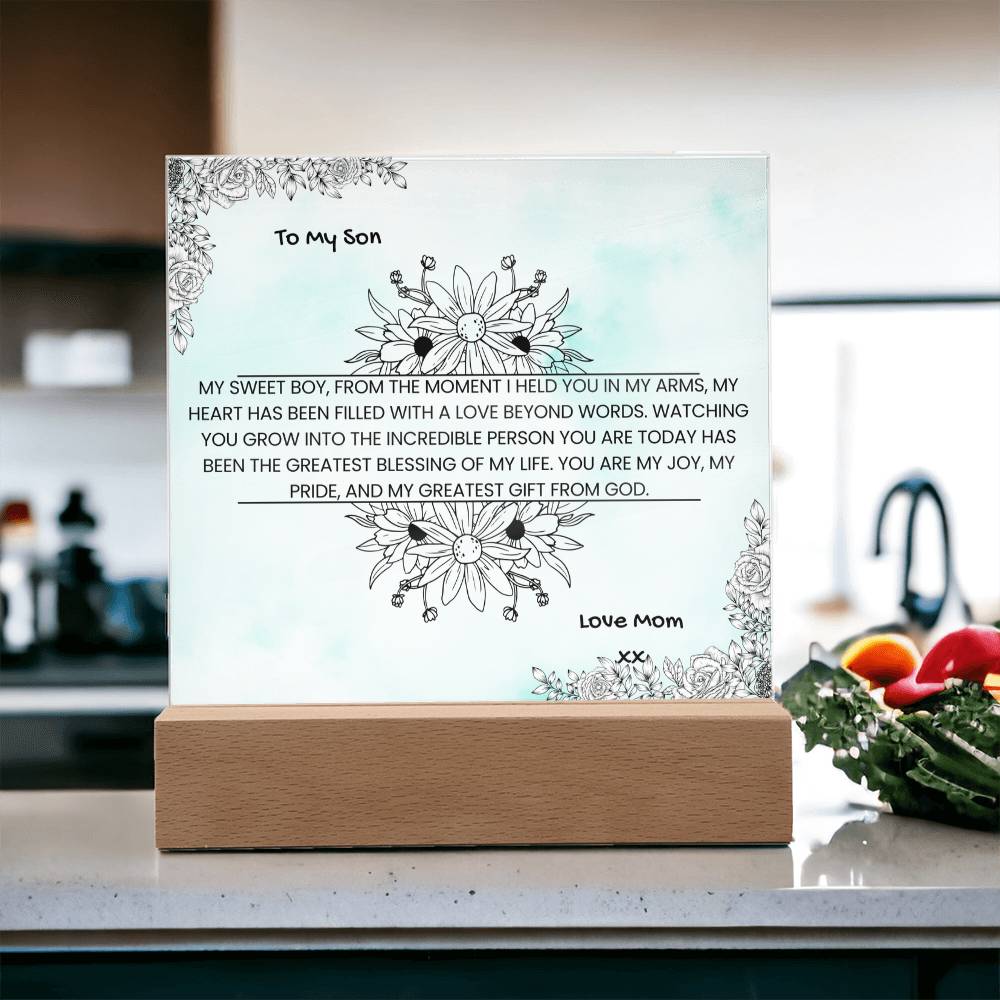 To My Son
MY SWEET BOY, FROM THE MOMENT I HELD YOU IN MY ARMS, MY
HEART HAS BEEN FILLED WITH A LOVE BEYOND WORDS. WATCHING
YOU GROW INTO THE INCREDIBLE PERSON YOU ARE TODAY HAS
BEEN THE GREATEST BLESSING OF MY LIFE. YOU ARE MY JOY, MY
PRIDE, AND MY GREATEST GIFT FROM GOD.
Love Mom
xx